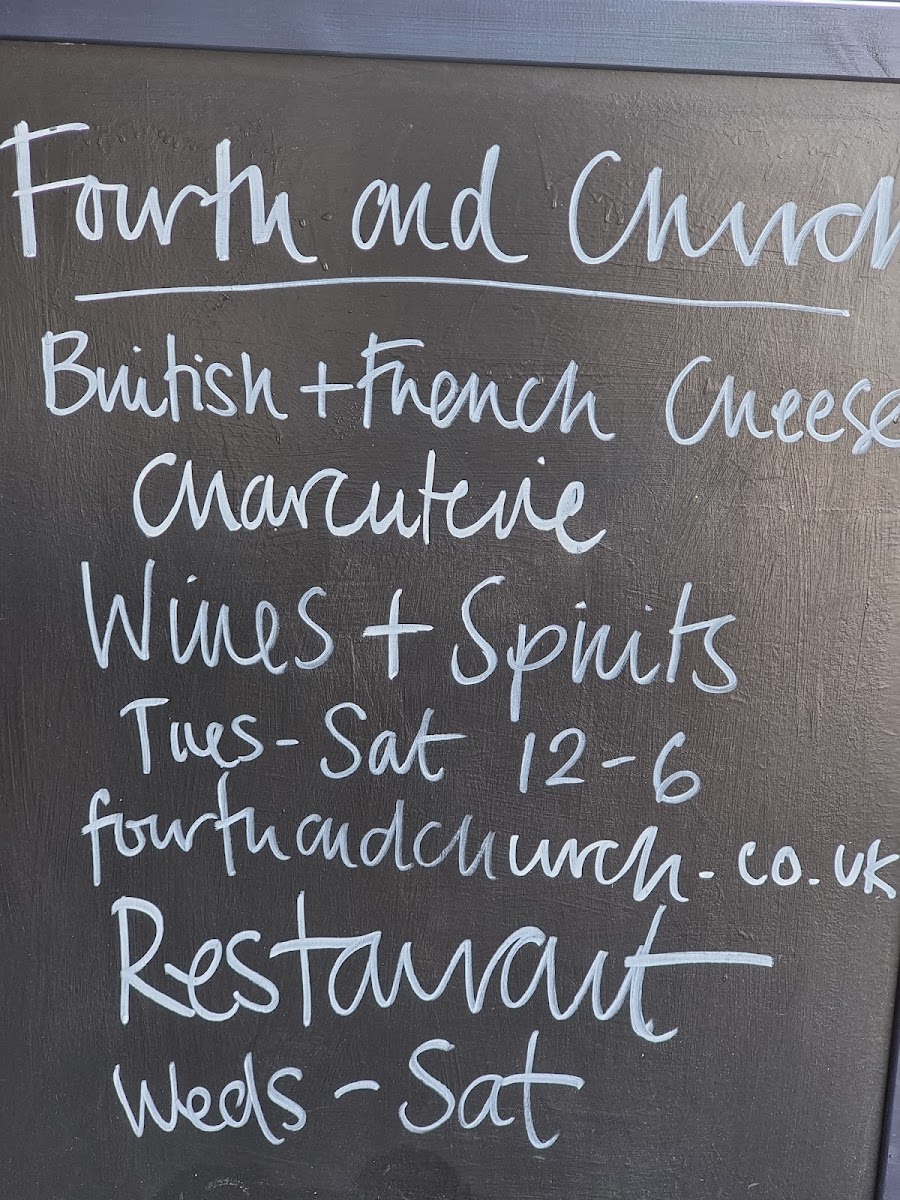 Fourth and Church
British + French Cheese
Charcuterie
Wines + Spirits
Tues - Sat 12-6
fourthandchurch.co.uk
Restaurant
Weds - Sat